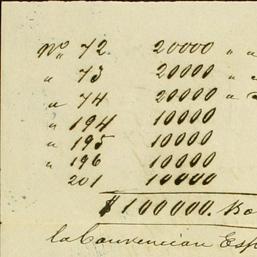 No 72. 20000 " a
" 73 20000 "
" 74 20000 " a
" 194 10000
" 195 10000
" 196 10000
201 10000
$100000. Bo
la Esp